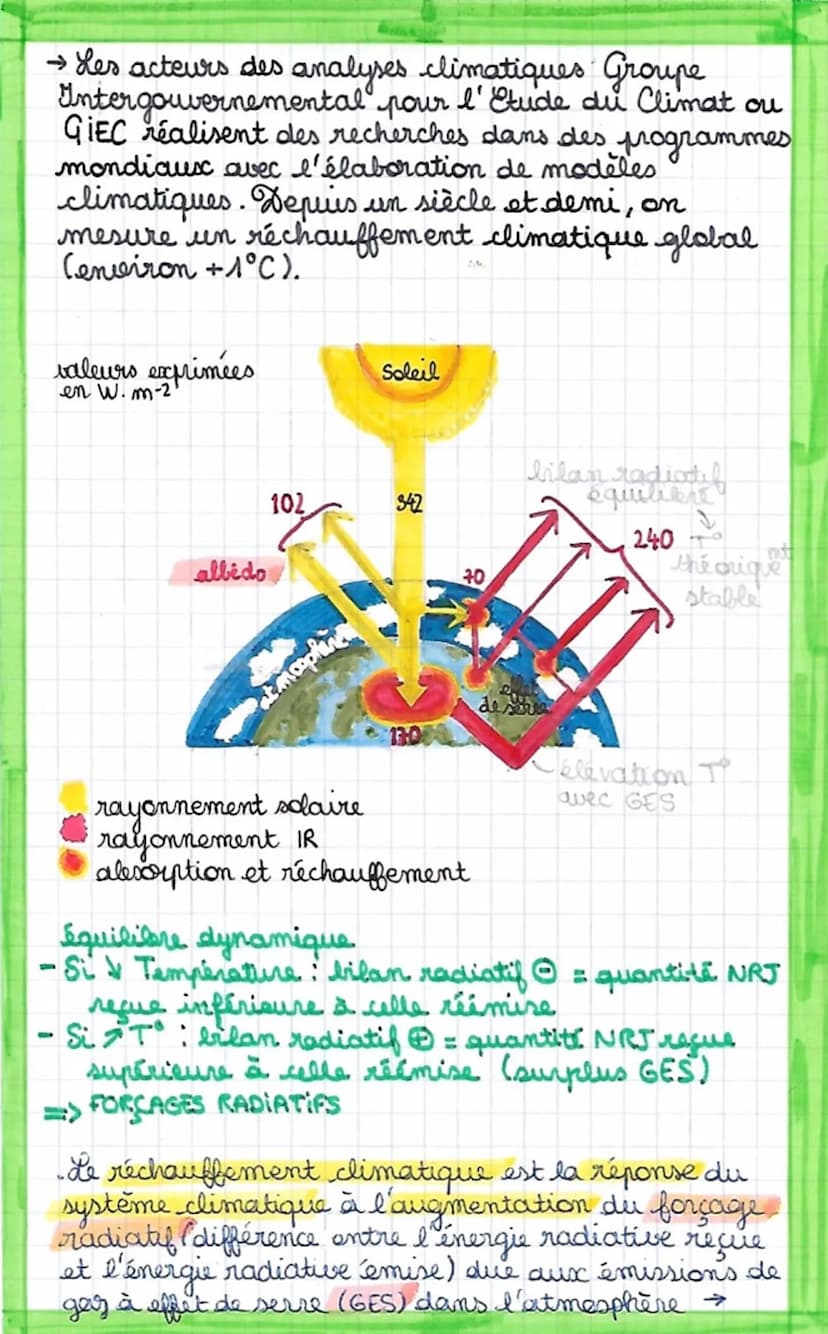 → Les acteurs des analyses climatiques : Groupe
Intergouvernemental pour l'Etude du Climat ou
GiEC réalisent des recherches dans des programmes
mondiaux avec l'élaboration de modèles
climatiques. Depuis un siècle et demi, on
mesure un réchauffement climatique global
(environ +1°C).
valeurs exprimées
en W.m-2
Soleil
bilan radiatif
équilibré
102
342
240
T°
théorique mt
stable
albédo
70
atmosphère
effet
de serre
170
élévation T°
avec GES
rayonnement solaire
rayonnement IR
absorption et réchauffement
équilibre dynamique
- Si ↘ Température : bilan radiatif ⊖ = quantité NRJ
reçue inférieure à celle réémise
- Si ↗ T° : bilan radiatif ⊕ = quantité NRJ reçue
supérieure à celle réémise (surplus GES)
=> FORÇAGES RADIATiFS
. Le réchauffement climatique est la réponse du
système climatique à l'augmentation du forçage
radiatif (différence entre l'énergie radiative reçue
et l'énergie radiative émise) due aux émissions de
gaz à effet de serre (GES) dans l'atmosphère →